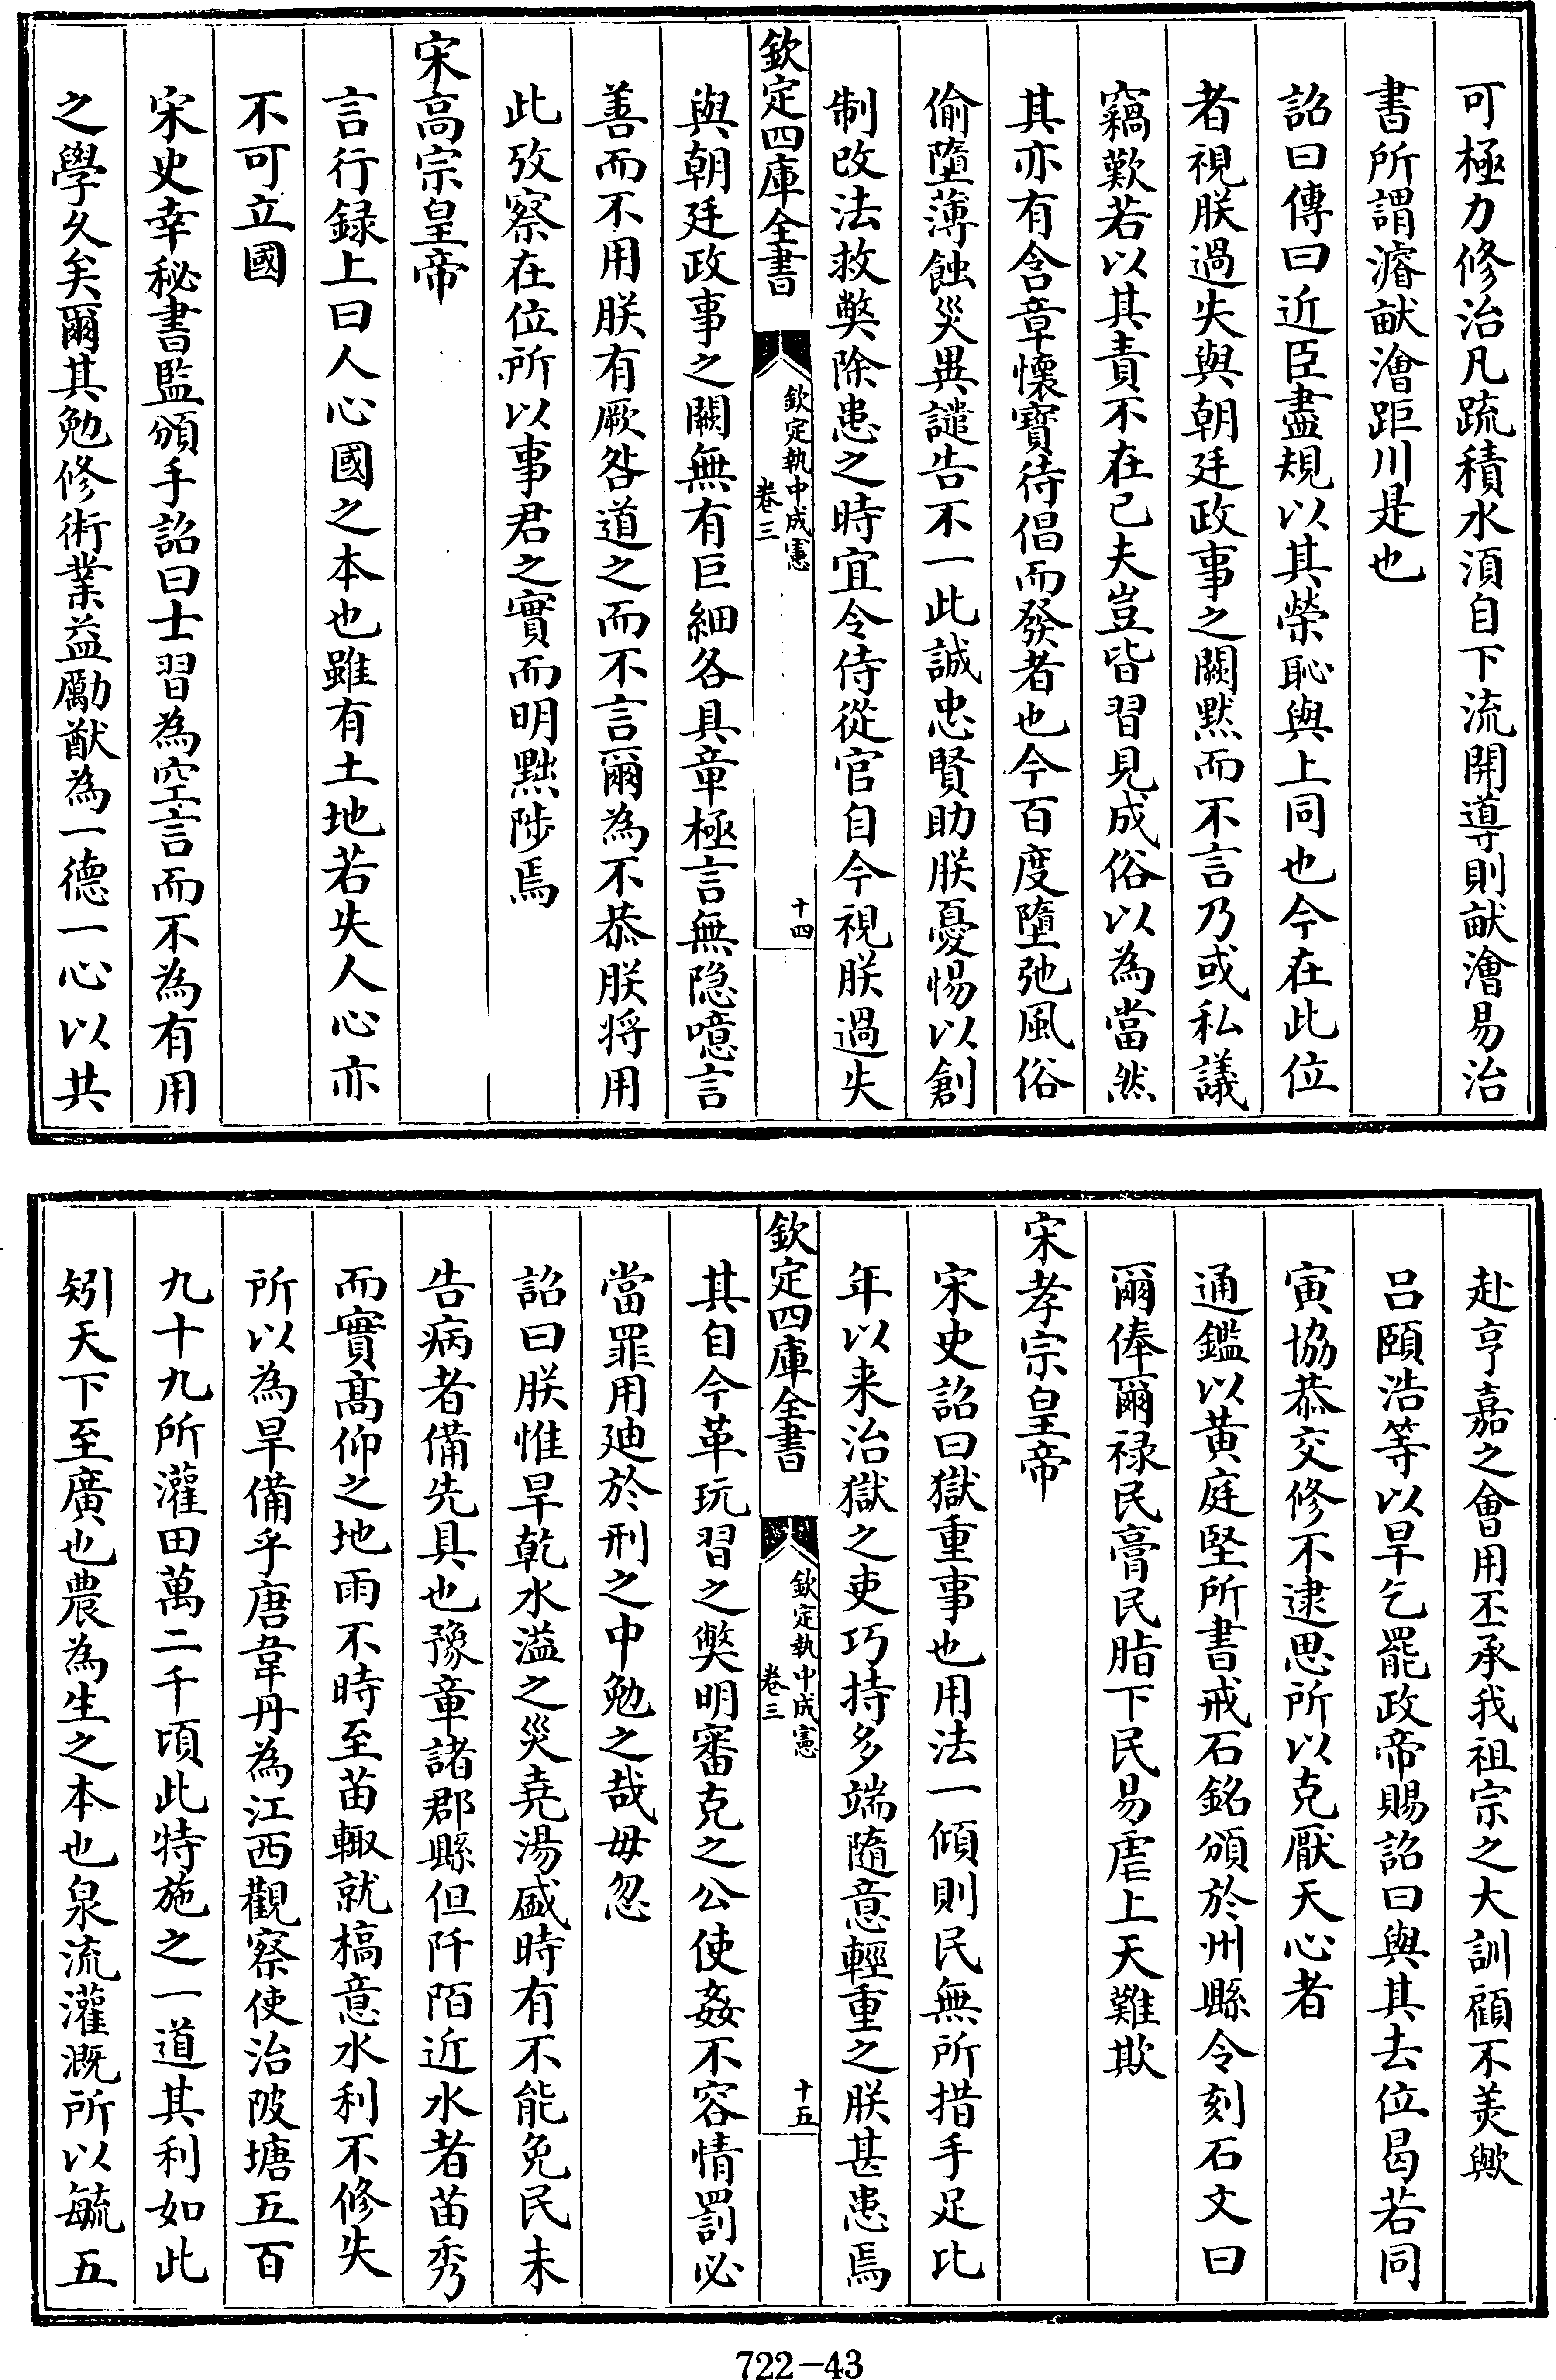 可極力修治凡疏積水湏自下流開導則畎澮易治
書所謂濬畎澮距川是也
詔曰傳曰近臣盡規以其榮恥與上同也今在此位
者視朕過失與朝廷政事之闕黙而不言乃或私議
竊歎若以其責不在已夫豈皆習見成俗以為當然
其亦有含章懷寳待倡而發者也今百度墮弛風俗
偷墮薄蝕災異譴告不一此誠忠賢助朕憂惕以創
制改法救弊除患之時宜令侍從官自今視朕過失
欽定四庫全書
欽定執中成憲
卷三
十四
與朝廷政事之闕無有巨細各具章極言無隐噫言
善而不用朕有厥咎道之而不言爾為不恭朕将用
此攷察在位所以事君之實而明黜陟焉
宋高宗皇帝
言行録上曰人心國之本也雖有土地若失人心亦
不可立國
宋史幸秘書監頒手詔曰士習為空言而不為有用
之學久矣爾其勉修術業益勵猷為一德一心以共
赴亨嘉之會用丕承我祖宗之大訓顧不美歟
吕頤浩等以旱乞罷政帝賜詔曰與其去位曷若同
寅協恭交修不逮思所以克厭天心者
通鑑以黄庭堅所書戒石銘頒於州縣令刻石文曰
爾俸爾禄民膏民脂下民易虐上天難欺
宋孝宗皇帝
宋史詔曰獄重事也用法一傾則民無所措手足比
年以来治獄之吏巧持多端隨意輕重之朕甚患焉
欽定四庫全書
欽定執中成憲
卷三
十五
其自今革玩習之獘明審克之公使姦不容情罰必
當罪用廸於刑之中勉之哉毋忽
詔曰朕惟旱乾水溢之災堯湯盛時有不能免民未
告病者備先具也豫章諸郡縣但阡陌近水者苗秀
而實髙仰之地雨不時至苗輙就槁意水利不修失
所以為旱備乎唐韋丹為江西觀察使治陂塘五百
九十九所灌田萬二千頃此特施之一道其利如此
矧天下至廣也農為生之本也泉流灌溉所以毓五
722-43